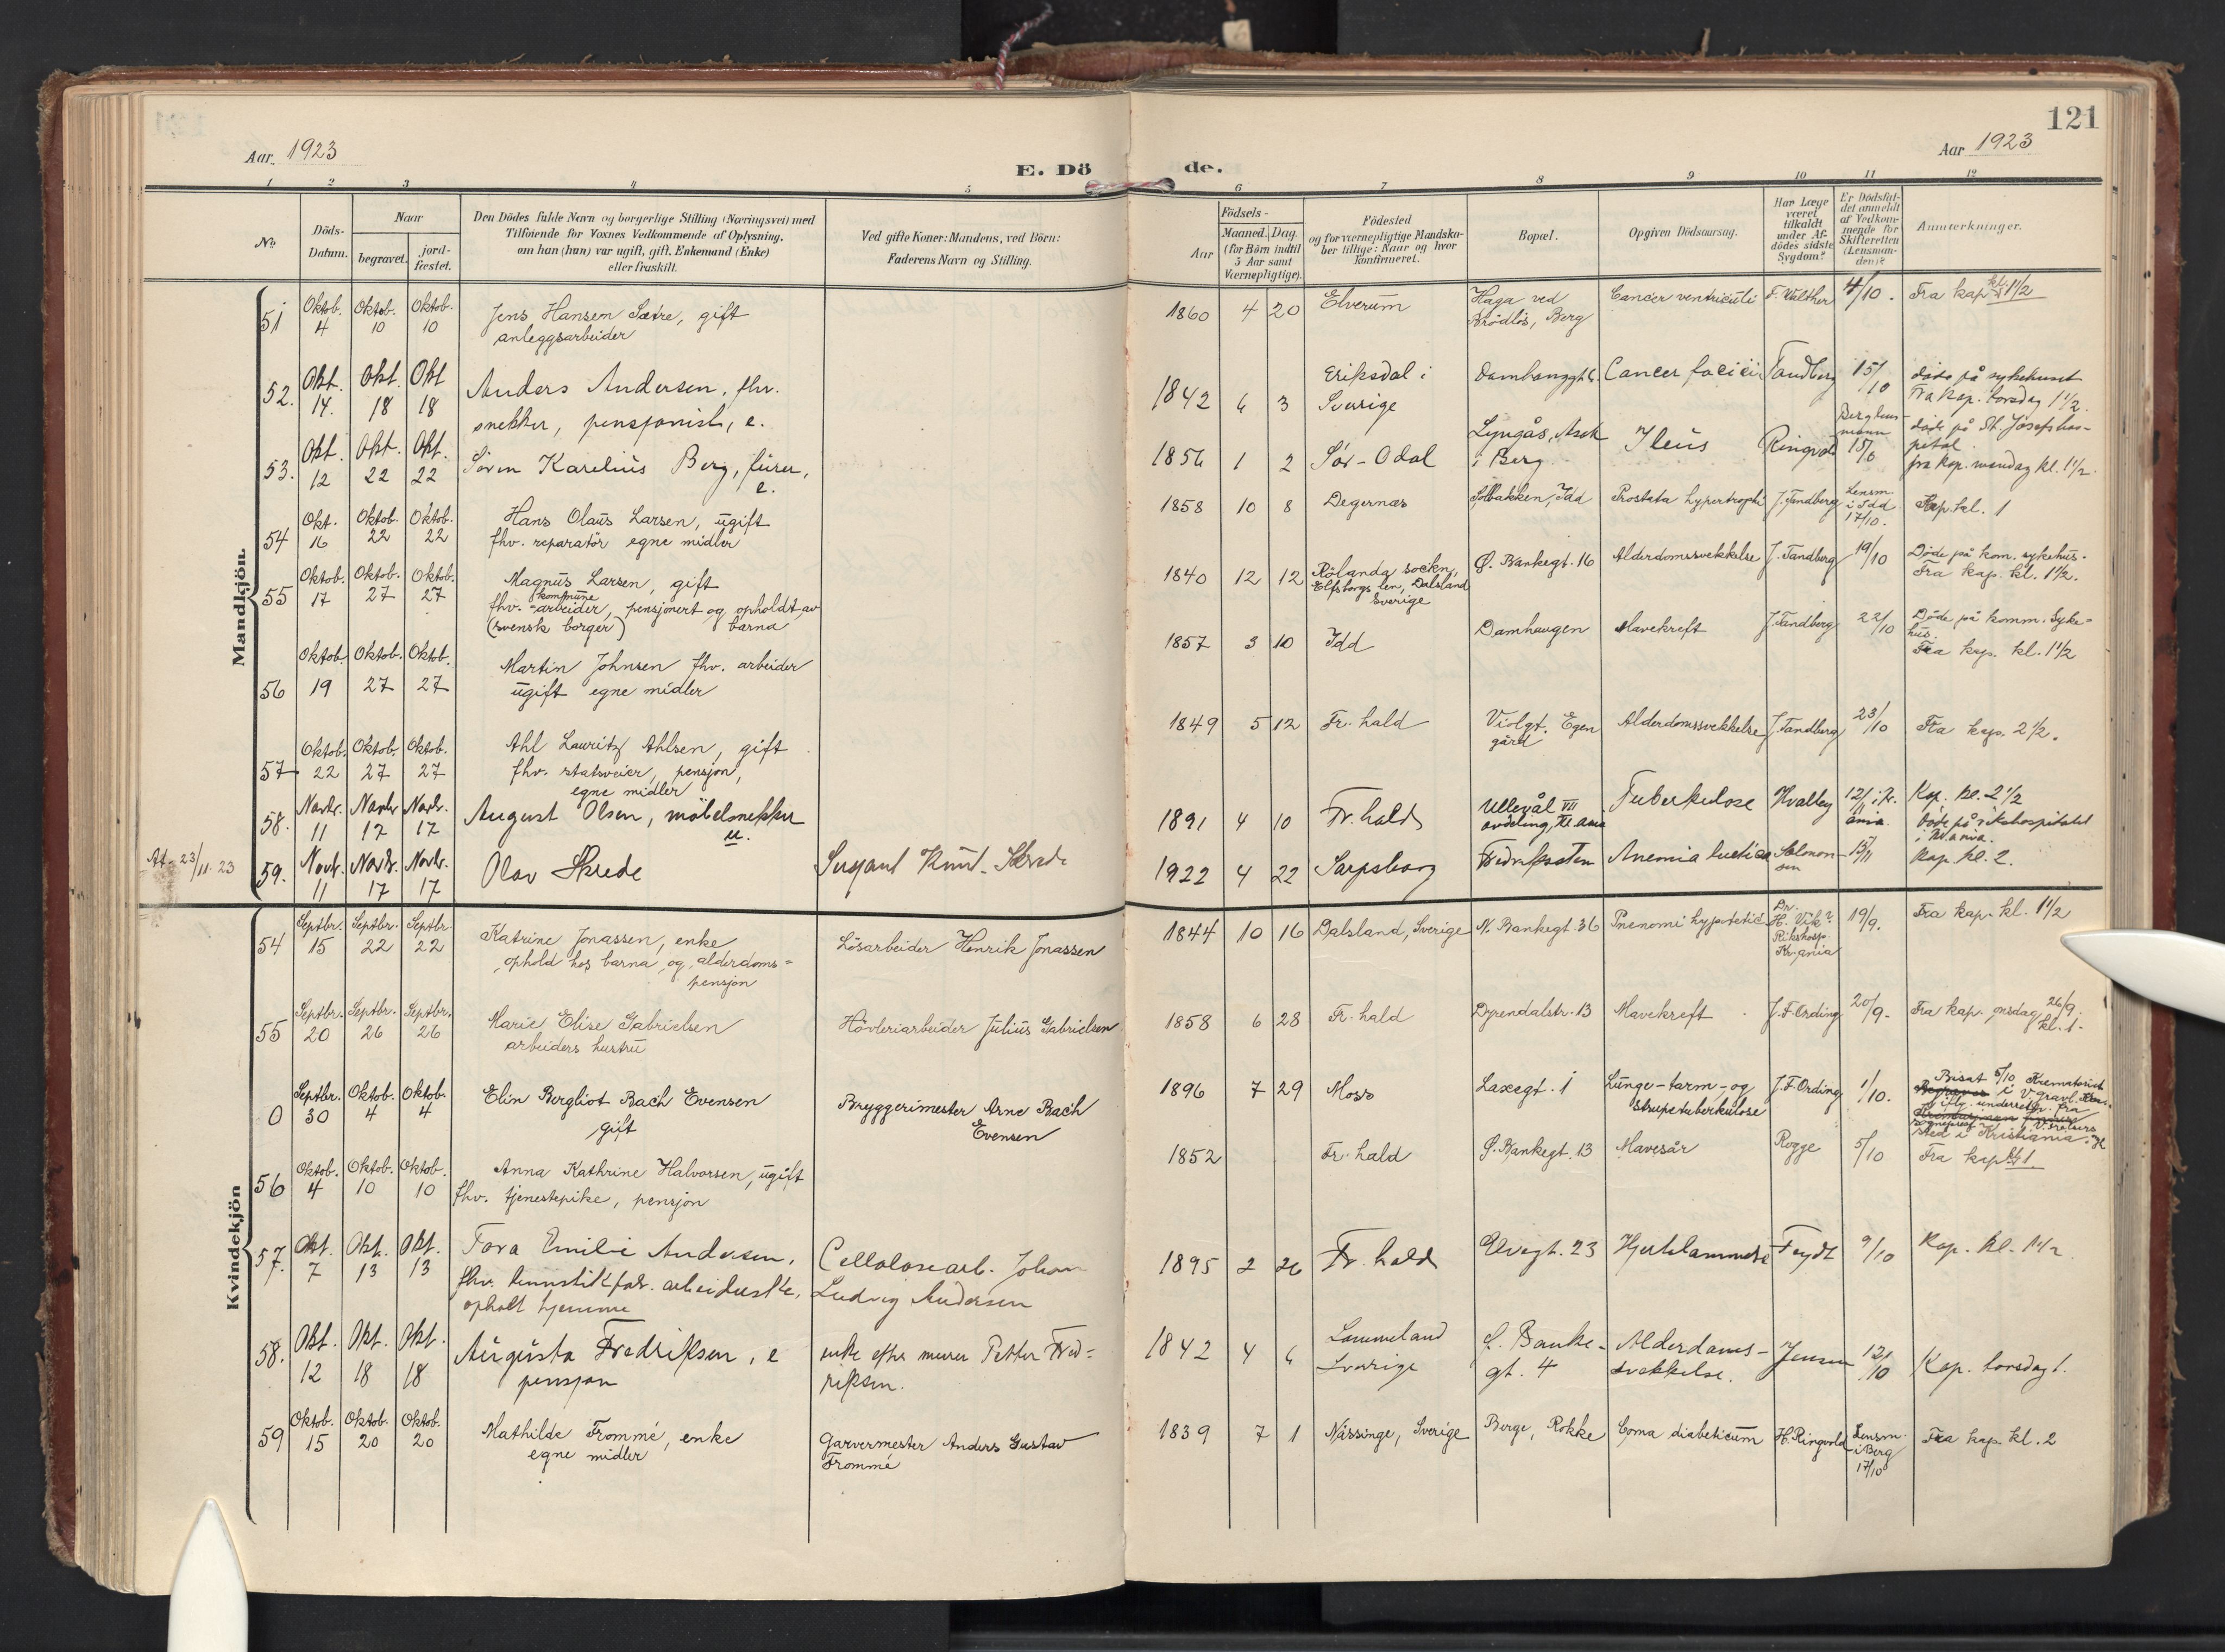 121
Aar. 1923
Aar 1923
E. Dö de.
1 2 3 4 5 6 7 8 9 10 11 12
No.
Döds-
Datum.
Naar
begravet.
jord-
fæstet.
Den Dödes fulde Navn og borgerlige Stilling (Næringsvei) med
Tilföiende for Voxnes Vedkommende af Oplysning,
om han (hun) var ugift, gift, Enkemand (Enke)
eller fraskilt.
Ved gifte Koner: Mandens, ved Börn:
Faderens Navn og Stilling.
Födsels-
Aar
Maaned. Dag.
(for Börn indtil
5 Aar samt
Værnepligtige).
Födested
og for værnepligtige Mandska-
ber tillige: Naar og hvor
konfirmeret.
Bopæl.
Opgiven Dödsaarsag.
Har Læge
været
tilkaldt
under Af-
dödes sidste
Sygdom?
Er Dödsfal-
det anmeldt
af Vedkom-
mende for
Skifteretten
(Lensman-
den)?
Anmærkninger.
Mandkjön.
51 Oktob. 4 Oktob. 10 Oktob. 10
Jens Hansen Sætre, gift
anleggsarbeider
1860 4 20 Elverum
Haga ved
Brödlös, Berg
Cancer ventriculi F. Walther 4/10. Fra kap. kl. 1 1/2
52. Okt. 14. Okt. 18 Okt 18
Anders Andersen, fhv.
snekker, pensjonist, e.
1842 6 3 Eriksdal i
Sverige
Cancer faciei Tandberg 15/10
döde på sykehuset
Fra kap. torsdag 1 1/2.
53. Okt. 12 Okt. 22 Okt. 22
Sören Karelius Berg, furer,
e.
1856 1 2 Sör-Odal
Lyngås, Asak
i Berg
Ileus Ringvold
döde på St. Josefshos-
pital
fra kap. mandag kl. 1 1/2.
54 Okt. 16 Oktob. 22 Oktob. 22
Hans Olaus Larsen, ugift
fhv. reparatör egne midler
1858 10 8 Degernæs
Solbakken, Idd Prostata hypertrophi J. Tandberg
Lensm.
i Idd
17/10.
Kap. kl. 1
55 Oktob. 17 Oktob. 27 Oktob. 27
Magnus Larsen, gift
kommune
fhv. -arbeider, pensjonert og opholdt av
(svensk borger) barna
1840 12 12 Rölanda sockn,
Elfsborgs len, Dalsland
Sverige
Ø. Bankegt. 16 Alderdomssvekkelse J. Tandberg 19/10
Döde på kom. sykehus.
Fra kap. kl. 1 1/2.
56 Oktob. 19 Oktob. 27 Oktob. 27
Martin Johnsen fhv. arbeider
ugift egne midler
1857 3 10 Idd Damhaugen Mavekreft J. Tandberg 22/10
Döde på komm. Syke=
hus.
Fra kap. kl. 1 1/2
57 Oktob. 22 Oktob. 27 Oktob. 27
Ahl Lauritz Ahlsen, gift
fhv. statsveier, pensjon,
egne midler
1849 5 12 Fr. hald
Violgt. Egen
gård
Alderdomssvekkelse J. Tandberg 23/10 Fra kap. 2 1/2.
58. Novbr. 11 Novbr 17 Novbr. 17
August Olsen, möbelsnekker
u.
1891 4 10 Fr. hald
Ullevål VII
avdeling, Kr.ania
Tuberkulose Hvalby 12/11 i Kr.
ania
Kap. kl. 2 1/2
Döde på rikshospitalet
i Kr.ania.
At. 23/11. 23
59. Novbr. 11 Novbr. 17 Novbr. 17
Olav Skrede
Sersjant Knut Skrede
1922 4 22 Sarpsborg Fredriksten Anemia luetica Salomon-
sen
15/11 Kap. kl. 2.
Kvindekjön
54 Septbr. 15 Septbr. 22 Septbr. 22
Katrine Jonassen, enke
ophold hos barna og alderdoms=
pensjon
Lösarbeider Henrik Jonassen
1844 10 16 Dalsland, Sverige N. Bankegt. 36
Dr.
H. Vik?
Rikshosp.
Kr.ania
19/9. Fra kap. kl. 1 1/2
55 Septbr. 20 Septbr. 26 Septbr. 26
Marie Elise Gabrielsen
arbeiders hustru
Hövleriarbeider Julius Gabrielsen
1858 6 28 Fr. hald Dyrendalstr. 13 Mavekreft J. F. Ording 20/9.
Fra kap. onsdag 26/9.
kl. 1.
0 Septbr. 30 Oktob. 4 Oktob. 4
Elin Bergliot Bach Evensen
gift
Bryggerimester Arne Bach
Evensen
1896 7 29 Moss Laxegt. 1
Lunge-tarm-og
strupetuberkulose
J. F. Ording 1/10.
Bisat 5/10 Krematoriet
i V. gravl.
underretn. fra
sted i Kristiania.
56 Oktob. 4 Oktob. 10 Oktob. 10
Anna Kathrine Halvorsen, ugift
fhv. tjenestepike, pensjon
1852 Fr. hald Ø. Bankegt. 13 Mavesår Rogge 5/10 Fra kap. kl. 1
57. Okt. 7 Okt. 13 Okt. 13
Tora Emilie Andersen,
fhv. kunnstilkfabr. arbeiderske,
opholt hjemme
Cellolosearb. Johan
Ludvig Andersen
1895 2 26 Fr. hald Elvegt. 23 Hjertelammelse Feydt 9/10 Kap. kl. 1 1/2
58. Okt. 12 Okt. 18 Okt. 18
Augusta Fredriksen, e
pensjon
enke efter murer Petter Fred=
riksen.
1842 4 6 Lommeland
Sverige
Ø. Banke-
gt. 4
Alderdoms-
svekkelse.
Jensen 12/10 Kap. torsdag 1.
59 Oktob. 15 Oktob. 20 Oktob. 20
Mathilde Frommé, enke
egne midler
Garvermester Anders Gustav
Frommé
1839 7 1 Nässinge, Sverige Berge, Rokke Coma diabeticum H. Ringvold
Lensm.
i Berg
17/10
Fra kap. kl. 2